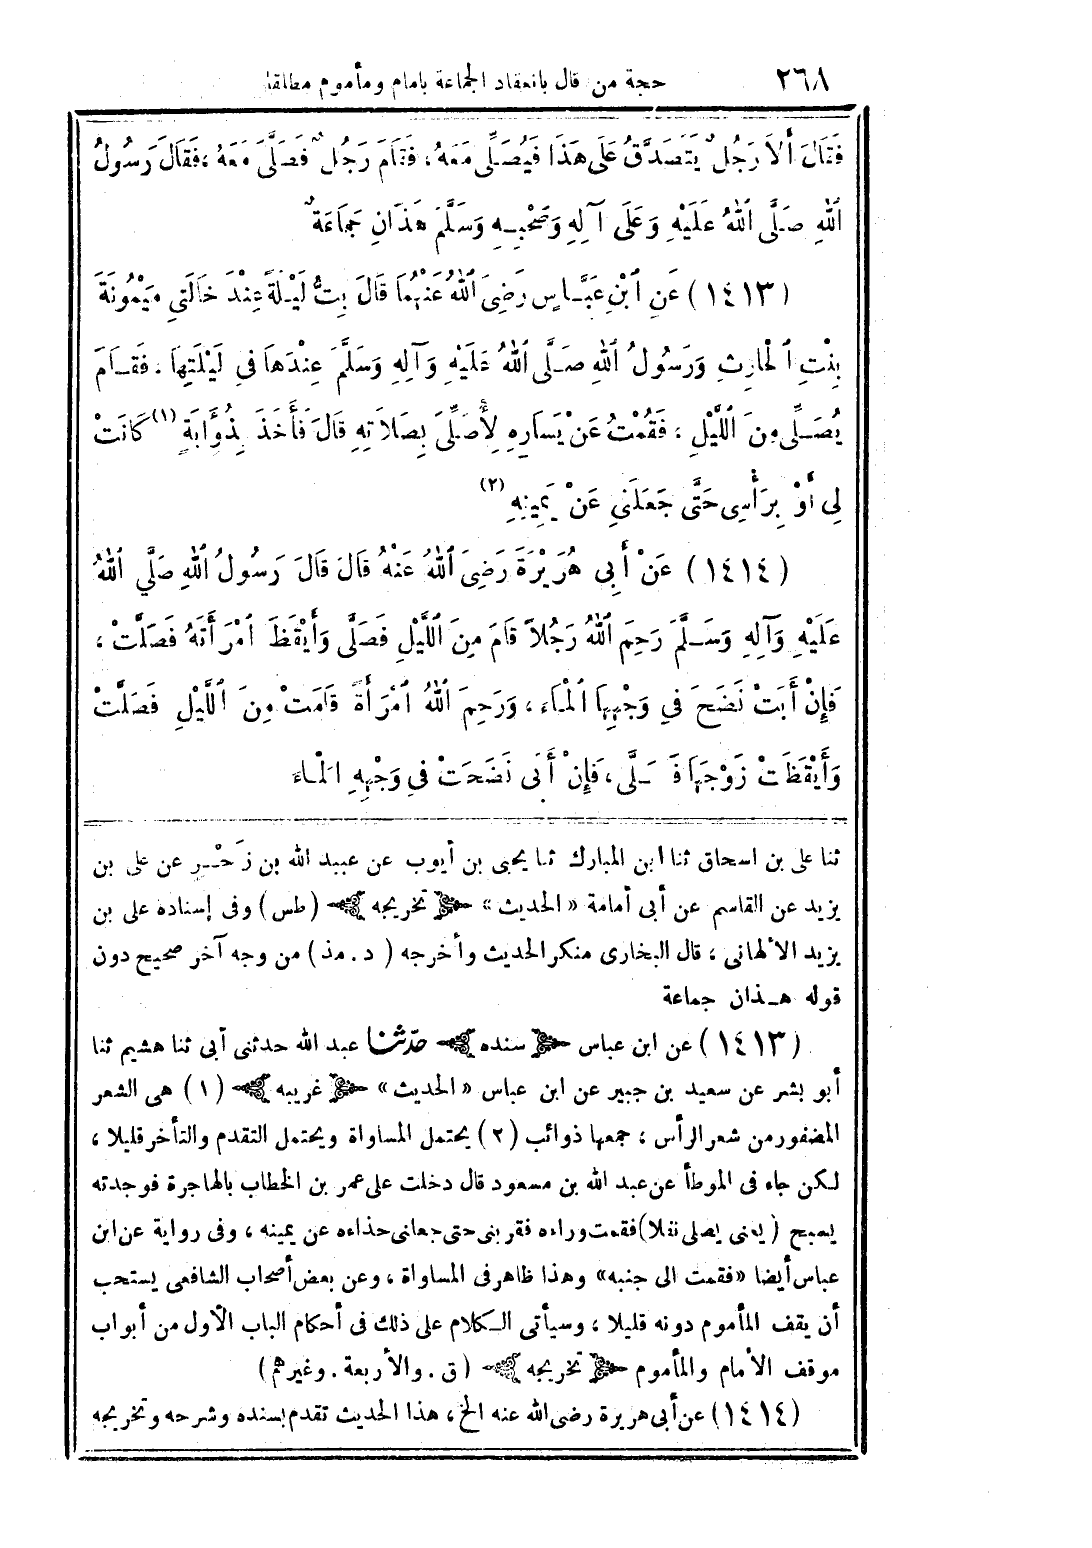 ٢٦٨ حجة من قال بانعقاد الجماعة بامام ومأموم مطلقا
فَقَالَ أَلاَ رَجُلٌ يَتَصَدَّقُ عَلَى هَذَا فَيُصَلِّى مَعَهُ، فَقَامَ رَجُلٌ فَصَلَّى مَعَهُ، فَقَالَ رَسُولُ
اللهِ صَلَّى اللهُ عَلَيْهِ وَعَلَى آلِهِ وَصَحْبِهِ وَسَلَّمَ هَذَانِ جَمَاعَةٌ
(١٤١٣) عَنِ ابْنِ عَبَّاسٍ رَضِىَ اللهُ عَنْهُمَا قَالَ بِتُّ لَيْلَةً عِنْدَ خَالَتِى مَيْمُونَةَ
بِنْتِ الْحَارِثِ وَرَسُولُ اللهِ صَلَّى اللهُ عَلَيْهِ وَآلِهِ وَسَلَّمَ عِنْدَهَا فِى لَيْلَتِهَا، فَقَامَ
يُصَلِّى مِنَ اللَّيْلِ، فَقُمْتُ عَنْ يَسَارِهِ لِأُصَلِّىَ بِصَلاَتِهِ قَالَ فَأَخَذَ بِذُؤَابَةٍ (١) كَانَتْ
لِى أَوْ بِرَأْسِى حَتَّى جَعَلَنِى عَنْ يَمِينِهِ (٢)
(١٤١٤) عَنْ أَبِى هُرَيْرَةَ رَضِىَ اللهُ عَنْهُ قَالَ قَالَ رَسُولُ اللهِ صَلَّى اللهُ
عَلَيْهِ وَآلِهِ وَسَلَّمَ رَحِمَ اللهُ رَجُلاً قَامَ مِنَ اللَّيْلِ فَصَلَّى وَأَيْقَظَ امْرَأَتَهُ فَصَلَّتْ،
فَإِنْ أَبَتْ نَضَحَ فِى وَجْهِهَا الْمَاءَ، وَرَحِمَ اللهُ امْرَأَةً قَامَتْ مِنَ اللَّيْلِ فَصَلَّتْ
وَأَيْقَظَتْ زَوْجَهَا فَصَلَّى، فَإِنْ أَبَى نَضَحَتْ فِى وَجْهِهِ الْمَاءَ
ثنا على بن اسحاق ثنا ابن المبارك ثنا يحيى بن أيوب عن عبيد الله بن زَحْرٍ عن على بن
يزيد عن القاسم عن أبى أمامة «الحديث» تخريجه (طس) وفى إسناده على بن
يزيد الألهانى، قال البخارى منكر الحديث وأخرجه (د. مذ) من وجه آخر صحيح دون
قوله هـذان جماعة
(١٤١٣) عن ابن عباس سنده حدّثنا عبد الله حدثنى أبى ثنا هشيم ثنا
أبو بشر عن سعيد بن جبير عن ابن عباس «الحديث» غريبه (١) هى الشعر
المضفور من شعر الرأس، جمعها ذوائب (٢) يحتمل المساواة ويحتمل التقدم والتأخر قليلا،
لكن جاء فى الموطأ عن عبد الله بن مسعود قال دخلت على عمر بن الخطاب بالهاجرة فوجدته
يسبح (يعنى يصلى نفلا) فقمت وراءه فقربنى حتى جعلنى حذاءه عن يمينه، وفى رواية عن ابن
عباس أيضا «فقمت الى جنبه» وهذا ظاهر فى المساواة، وعن بعض أصحاب الشافعى يستحب
أن يقف المأموم دونه قليلا، وسيأتى الـكلام على ذلك فى أحكام الباب الأول من أبواب
موقف الأمام والمأموم تخريجه (ق. والأربعة. وغيرهم)
(١٤١٤) عن أبى هريرة رضى الله عنه الخ، هذا الحديث تقدم بسنده وشرحه وتخريجه